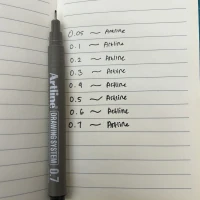 Artline® DRAWING SYSTEM 0.7
0.05 ~ Artline
0.1 ~ Artline
0.2 ~ Artline
0.3 ~ Artline
0.4 ~ Artline
0.5 ~ Artline
0.6 ~ Artline
0.7 ~ Artline